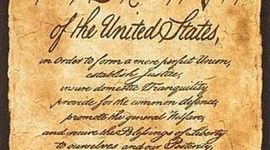 of the United States,
in Order to form a more perfect Union,
establish Justice,
insure domestic Tranquility,
provide for the common defence,
promote the general Welfare,
and secure the Blessings of Liberty
to ourselves and our Posterity,